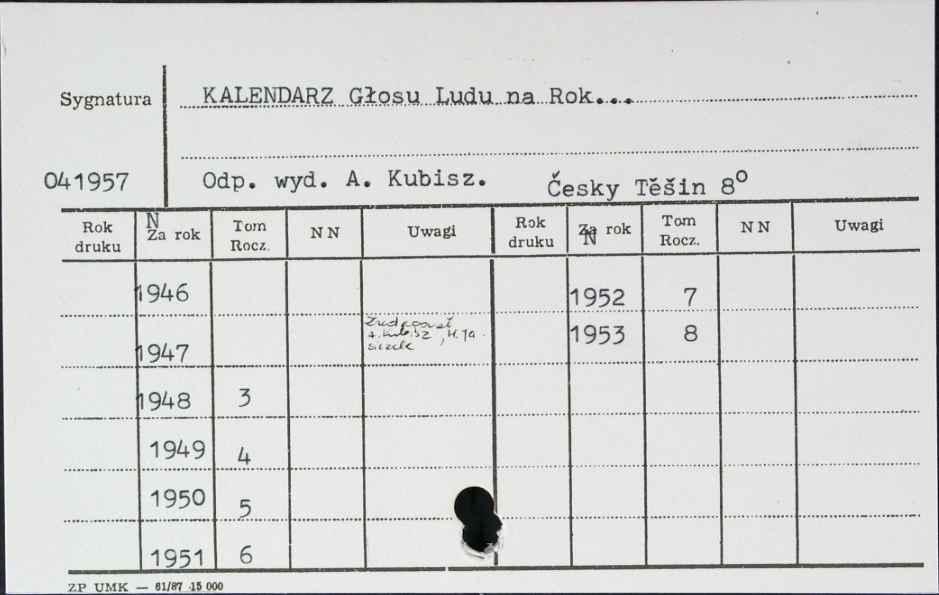 Sygnatura KALENDARZ Głosu Ludu na Rok...
041957 Odp. wyd. A. Kubisz. Česky Těšin 8°
Rok druku N Za rok Tom Rocz. N N Uwagi Rok druku Za rok N Tom Rocz. N N Uwagi
1946 1952 7
1947 A. Kubisz, H. Ja- 1953 8
1948 3
1949 4
1950 5
1951 6
ZP UMK — 61/87 15 000